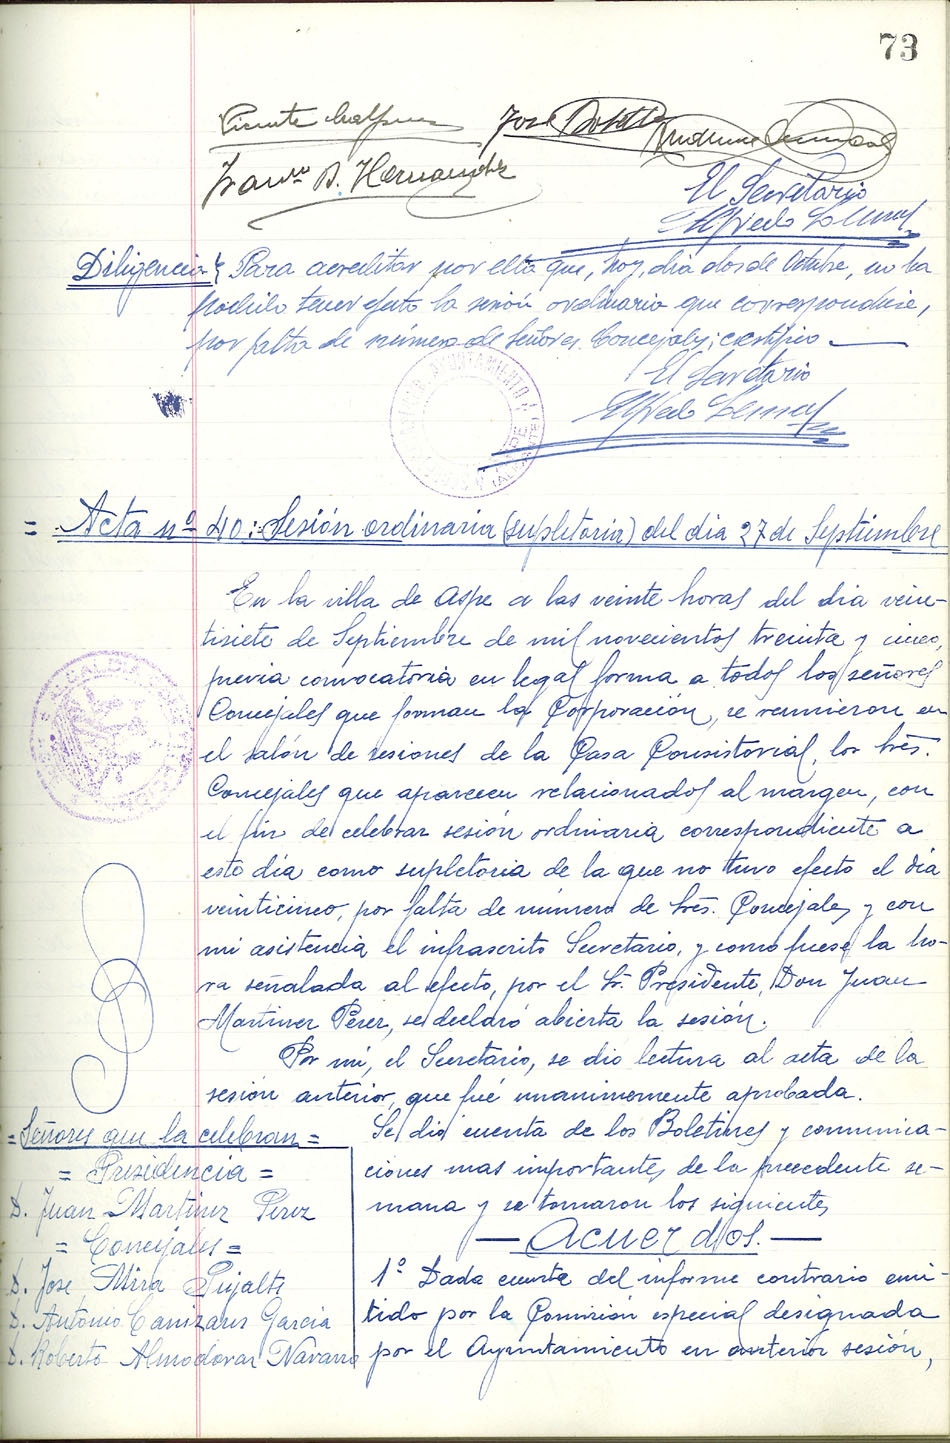 73
Vicente
José Botella
Franco A. Hernández
El Secretario
Alfredo
Diligencia} Para acreditar por ella que, hoy, dia dos de Octubre, no ha
podido tener efecto la sesión ordinaria que correspondiese,
por falta de número de señores Concejales; certifico.
El Secretario
Alfredo
AYUNTAMIENTO
ASPE
(ALICANTE)
= Acta nº 40: Sesión ordinaria (supletoria) del dia 27 de Septiembre
En la villa de Aspe a las veinte horas del dia vein-
tisiete de Septiembre de mil novecientos treinta y cinco,
previa convocatoria en legal forma a todos los señores
Concejales que forman la Corporación, se reunieron en
el salón de sesiones de la Casa Consistorial, los tres.
Concejales que aparecen relacionados al margen, con
el fin de celebrar sesión ordinaria correspondiente a
este día como supletoria de la que no tuvo efecto el dia
veinticinco, por falta de número de Sres. Concejales, y con
mi asistencia el infrascrito Secretario, y como fuese la ho-
ra señalada al efecto, por el Sr. Presidente, Don Juan
Martinez Perez, se declaró abierta la sesión.
Por mí, el Secretario, se dió lectura al acta de la
sesión anterior, que fué unanimemente aprobada.
ALCALDIA
= Señores que la celebran =
= Presidencia =
D. Juan Martinez Perez
= Concejales =
D. Jose Mira Pujalte
D. Antonio Cañizares Garcia
D. Roberto Almodovar Navarro
Se dió cuenta de los Boletines y comunica-
ciones mas importantes de la precedente se-
mana y se tomaron los siguientes
— Acuerdos. —
1º Dada cuenta del informe contrario emi-
tido por la Comisión especial designada
por el Ayuntamiento en anterior sesión,